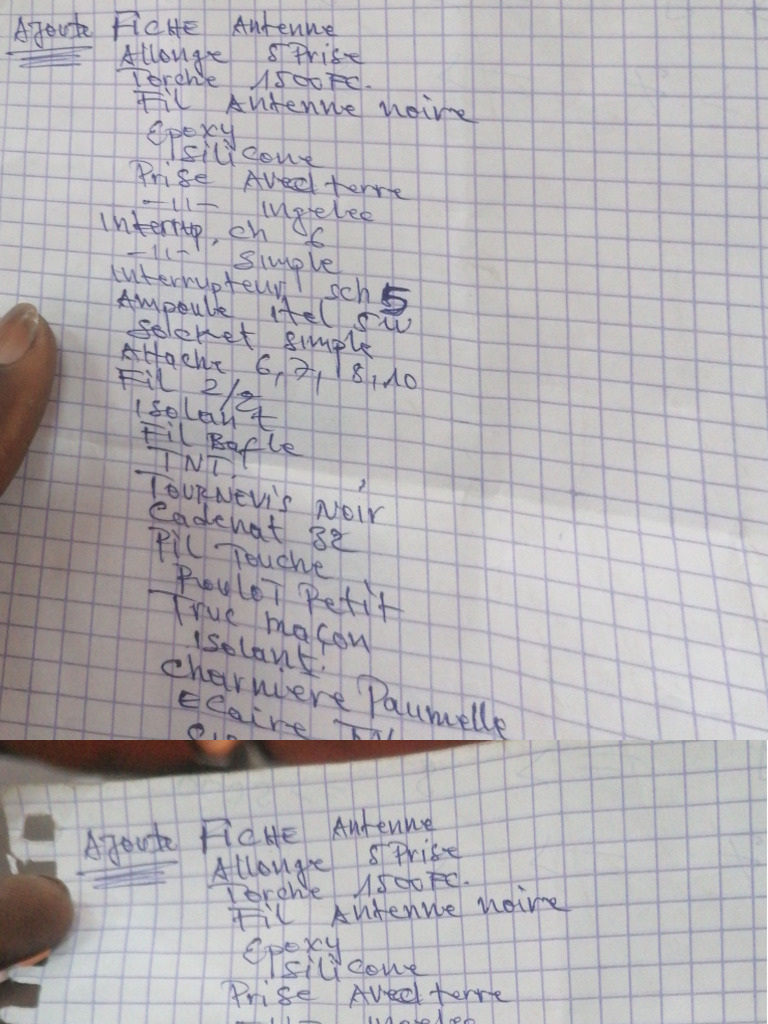 Ajoute FICHE Antenne
Allonge 5 Prise
Torche 1500 FC.
Fil Antenne noire
Epoxy
Silicone
Prise Avec terre
-11- ingelec
Interrup, ch 6
-11- Simple
Interrupteur sch 5
Ampoule itel 5W
Solchet simple
Attache 6, 7, 8, 10
Fil 2/2
Isolant
Fil Bafle
TNT
TOURNEVIS NOIR
Cadenat 32
Pil Touche
Petit
Truc maçon
Isolant.
Charniere Paumelle
Ecaire
Ajoute FICHE Antenne
Allonge 5 Prise
Torche 1500 FC.
Fil Antenne noire
Epoxy
Silicone
Prise Avec terre
-11- ingelec